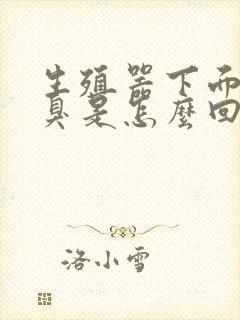 生殖器下面
臭是怎麽回
洛小雪